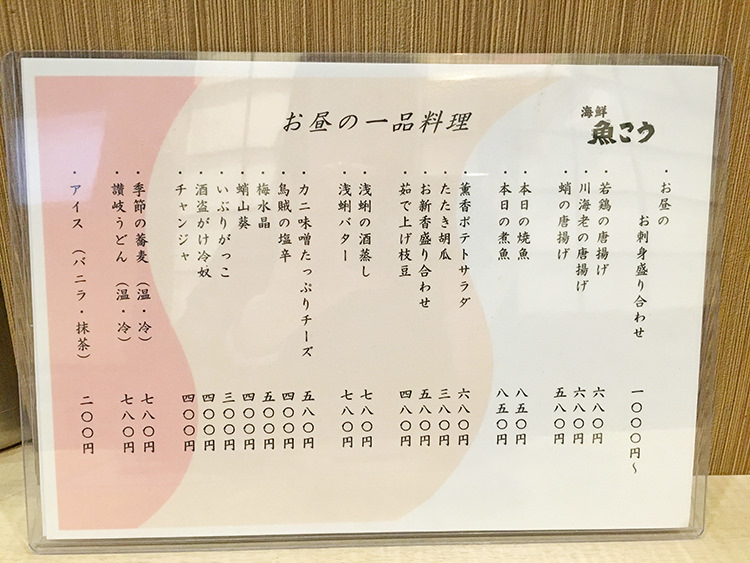 海鮮
魚こう
お昼の一品料理
・お昼の
お刺身盛り合わせ 一〇〇〇円〜
・若鶏の唐揚げ 六八〇円
・川海老の唐揚げ 六八〇円
・蛸の唐揚げ 五八〇円
・本日の焼魚 八五〇円
・本日の煮魚 八五〇円
・薫香ポテトサラダ 六八〇円
・たたき胡瓜 三八〇円
・お新香盛り合わせ 五八〇円
・茹で上げ枝豆 四八〇円
・浅蜊の酒蒸し 七八〇円
・浅蜊バター 七八〇円
・カニ味噌たっぷりチーズ 五八〇円
・烏賊の塩辛 四〇〇円
・梅水晶 五〇〇円
・蛸山葵 四〇〇円
・いぶりがっこ 三〇〇円
・酒盗がけ冷奴 四〇〇円
・チャンジャ 四〇〇円
・季節の蕎麦 (温・冷) 七八〇円
・讃岐うどん (温・冷) 七八〇円
・アイス (バニラ・抹茶) 二〇〇円